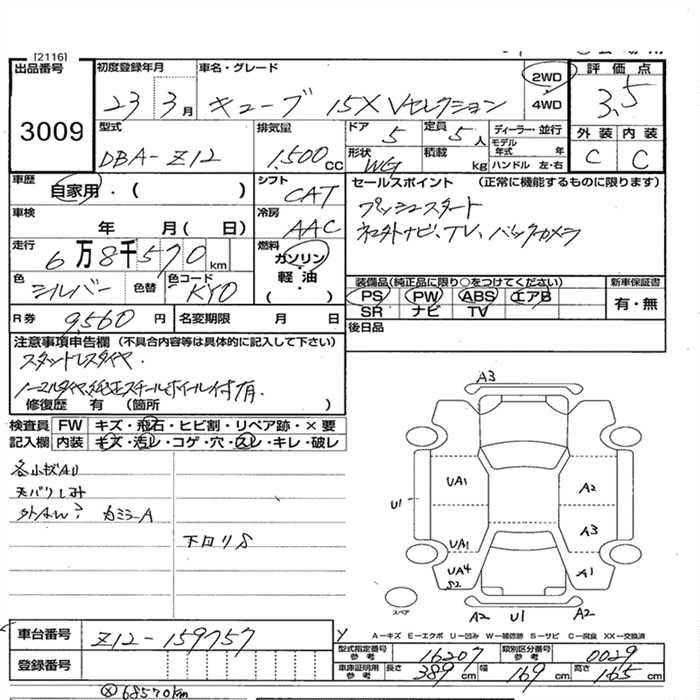 [2116]
出品番号 3009
初度登録年月 23 3月
車名・グレード キューブ 15X Vセレクション
2WD
4WD
評価点 3.5
外装 内装
C C
型式 DBA-Z12
排気量 1500 CC
ドア 5
定員 5人
形状 WG
積載 kg
ディーラー・並行
モデル年式 年
ハンドル 左・右
車歴 自家用・( )
シフト CAT
車検 年 月( 日)
冷房 AAC
走行 6万8千570km
燃料 ガソリン・軽油・( )
色 シルバー 色替
色コード KY0
R券 9,560円
名変期限 月 日
セールスポイント (正常に機能するものに限ります)
プッシュスタート
ネ土外ナビ、TV、バックカメラ
装備品(純正品に限り○をつけてください)
PS PW ABS エアB
SR ナビ TV
新車保証書
有・無
後日品
注意事項申告欄(不具合内容等は具体的に記入して下さい)
スタッドレスタイヤ.
ノーマルタイヤ、純正スチールホイール付有.
修復歴 有 (箇所 )
検査員記入欄
FW キズ・飛石・ヒビ割・リペア跡・×要
内装 キズ・汚レ・コゲ・穴・スレ・キレ・破レ
各小キズAU
天バリしみ
カミラーA
下回りS
A3
UA1
U1
A2
A3
UA1
UA4
S2
A1
スペア
A2 U1 A2
A−キズ E−エクボ U−凹み W−補修跡 S−サビ C−腐食 XX−交換済
車台番号 Z12-159757
登録番号
型式指定番号参考 16207
類別区分番号参考 0029
車庫証明用参考 長さ 389cm 幅 169cm 高さ 165cm
68570km